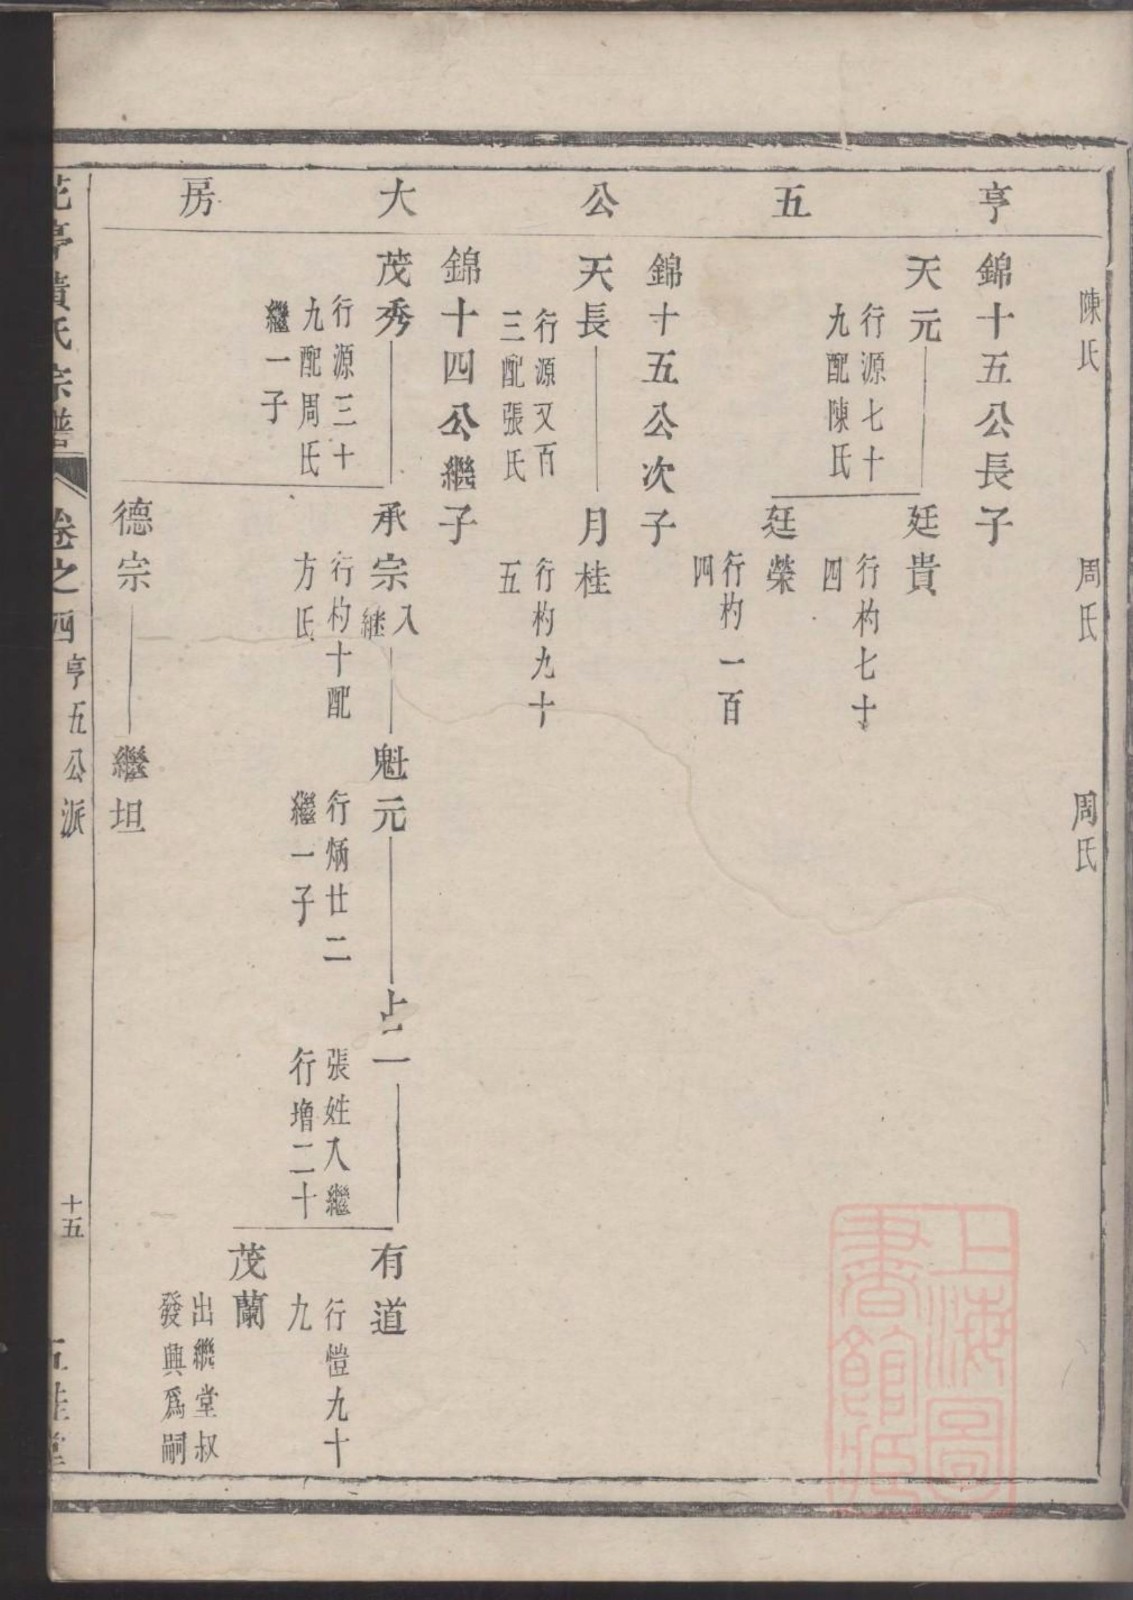 亨五公大房
陳氏
周氏
周氏
錦十五公長子
天元
行源七十
九配陳氏
廷貴
行杓七十
四
廷榮
行杓一百
四
錦十五公次子
天長
行源又百
三配張氏
月桂
行杓九十
五
錦十四公繼子
茂秀
行源三十
九配周氏
繼一子
承宗
入
継
行杓十配
方氏
魁元
行炳廿二
繼一子
上二
張姓入繼
行增二十
有道
行愷九十
九
茂蘭
出繼堂叔
發興爲嗣
德宗
繼坦
花亭黃氏宗譜
卷之四
亨五公派
十五
五桂堂
上海圖
書館藏